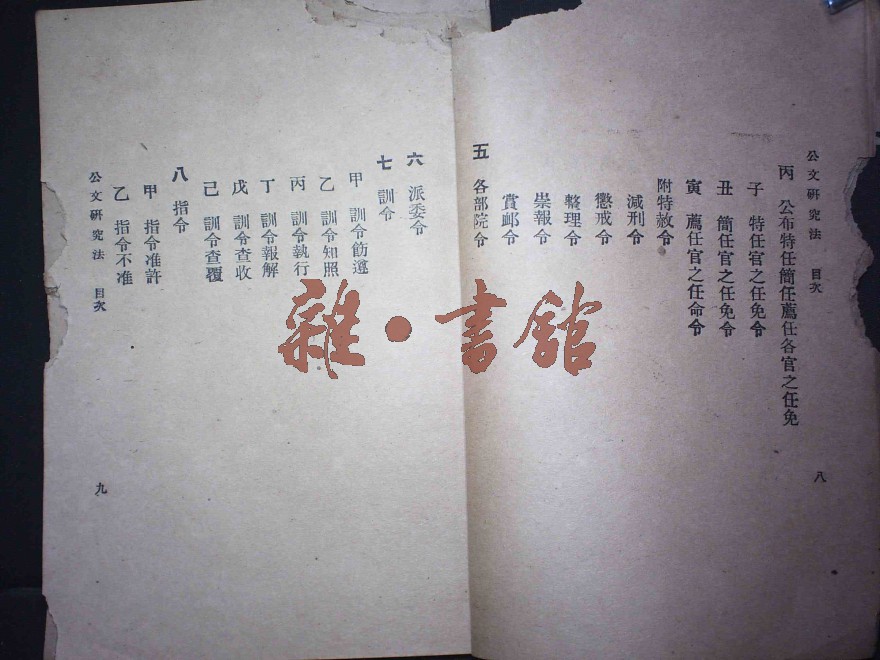 公文研究法　目次
丙　公布特任簡任薦任各官之任免
子　特任官之任免令
丑　簡任官之任免令
寅　薦任官之任命令
附特赦令
減刑令
懲戒令
整理令
崇報令
賞卹令
五　各部院令
八
六　派委令
七　訓令
甲　訓令飭遵
乙　訓令知照
丙　訓令執行
丁　訓令報解
戊　訓令查收
己　訓令查覆
八　指令
甲　指令准許
乙　指令不准
公文研究法　目次
九
雜・書館